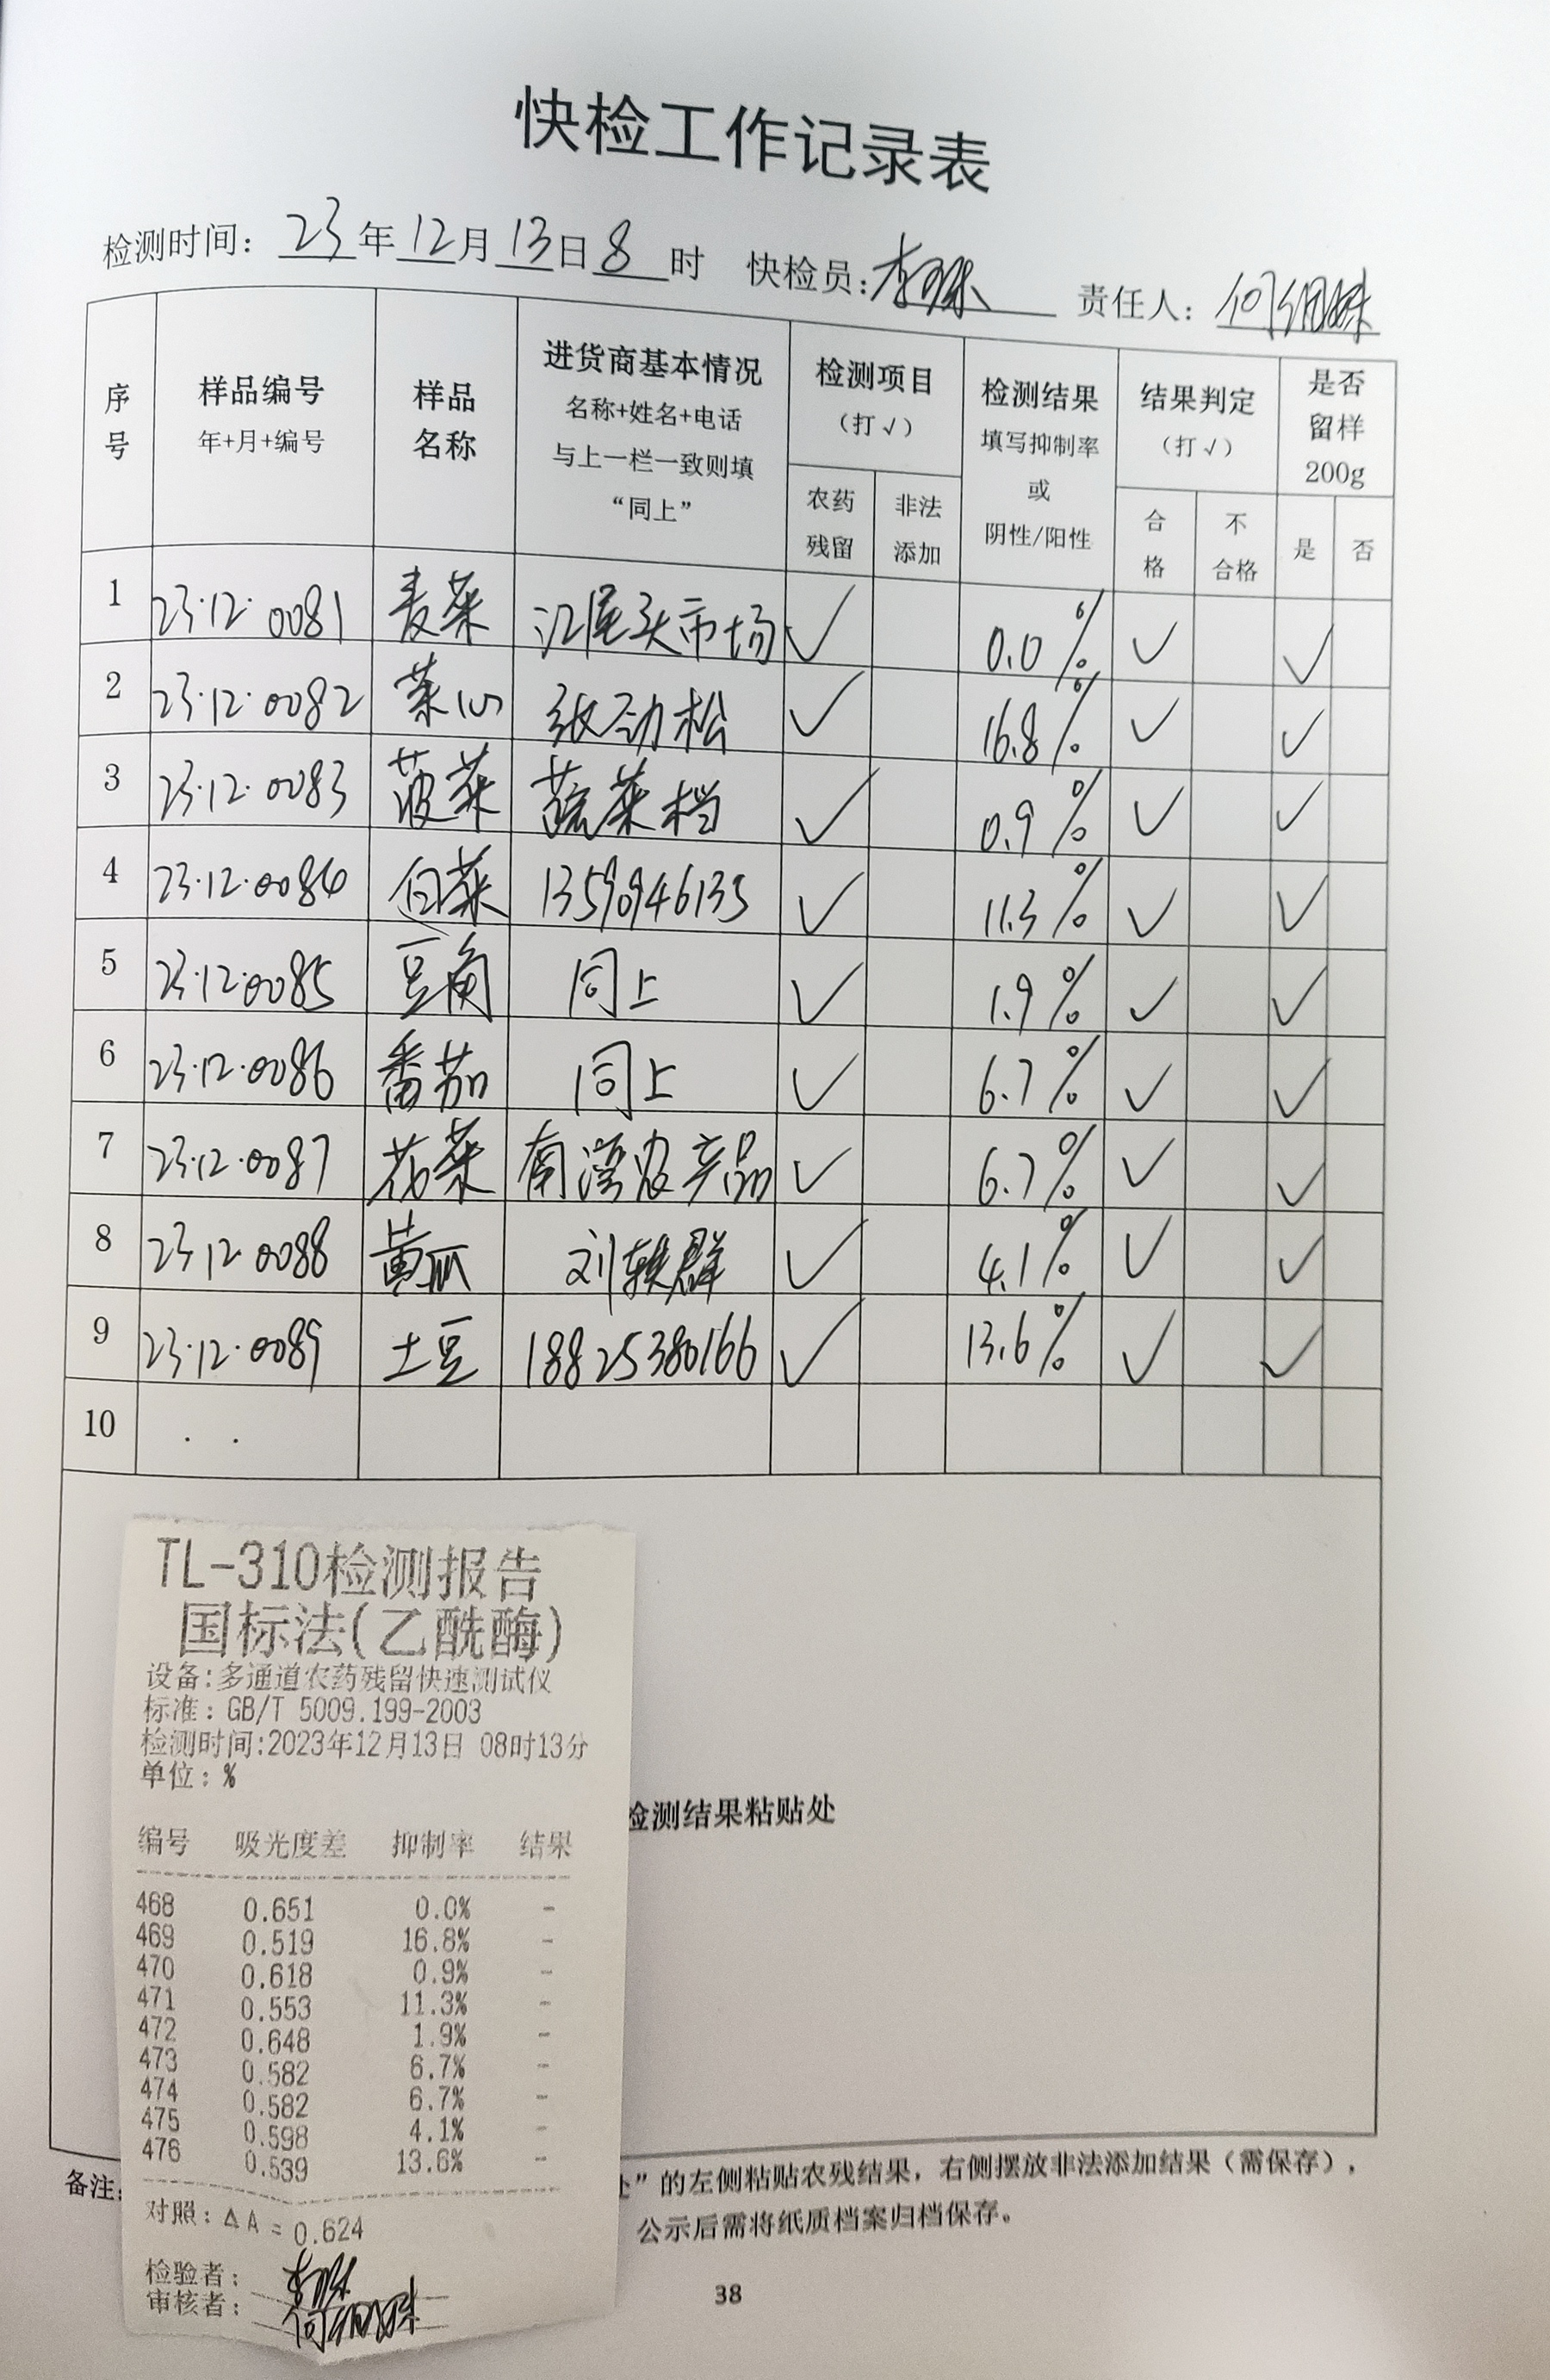 快检工作记录表
检测时间: 23年12月13日8时 快检员: 责任人:
序号 样品编号 年+月+编号 样品名称 进货商基本情况 名称+姓名+电话 与上一栏一致则填“同上” 检测项目(打√) 农药残留 非法添加 检测结果 填写抑制率或阴性/阳性 结果判定(打√) 合格 不合格 是否留样200g 是 否
1 23.12.0081 麦菜 江尾头市场 √ 0.0% √ √
2 23.12.0082 菜心 张劲松 √ 16.8% √ √
3 23.12.0083 菠菜 蔬菜档 √ 0.9% √ √
4 23.12.0084 白菜 13590946135 √ 11.3% √ √
5 23.12.0085 豆角 同上 √ 1.9% √ √
6 23.12.0086 番茄 同上 √ 6.7% √ √
7 23.12.0087 花菜 南湾农产品 √ 6.7% √ √
8 23 12.0088 黄瓜 √ 4.1% √ √
9 23.12.0089 土豆 18825380166 √ 13.6% √ √
10 . .
TL-310检测报告
国标法(乙酰酶)
设备:多通道农药残留快速测试仪
标准: GB/T 5009.199-2003
检测时间:2023年12月13日 08时13分
单位: %
检测结果粘贴处
编号 吸光度差 抑制率 结果
468 0.651 0.0% -
469 0.519 16.8% -
470 0.618 0.9% -
471 0.553 11.3% -
472 0.648 1.9% -
473 0.582 6.7% -
474 0.582 6.7% -
475 0.598 4.1% -
476 0.539 13.6% -
对照: ΔA = 0.624
检验者:
审核者:
备注: 处”的左侧粘贴农残结果，右侧摆放非法添加结果（需保存），
公示后需将纸质档案归档保存。
38